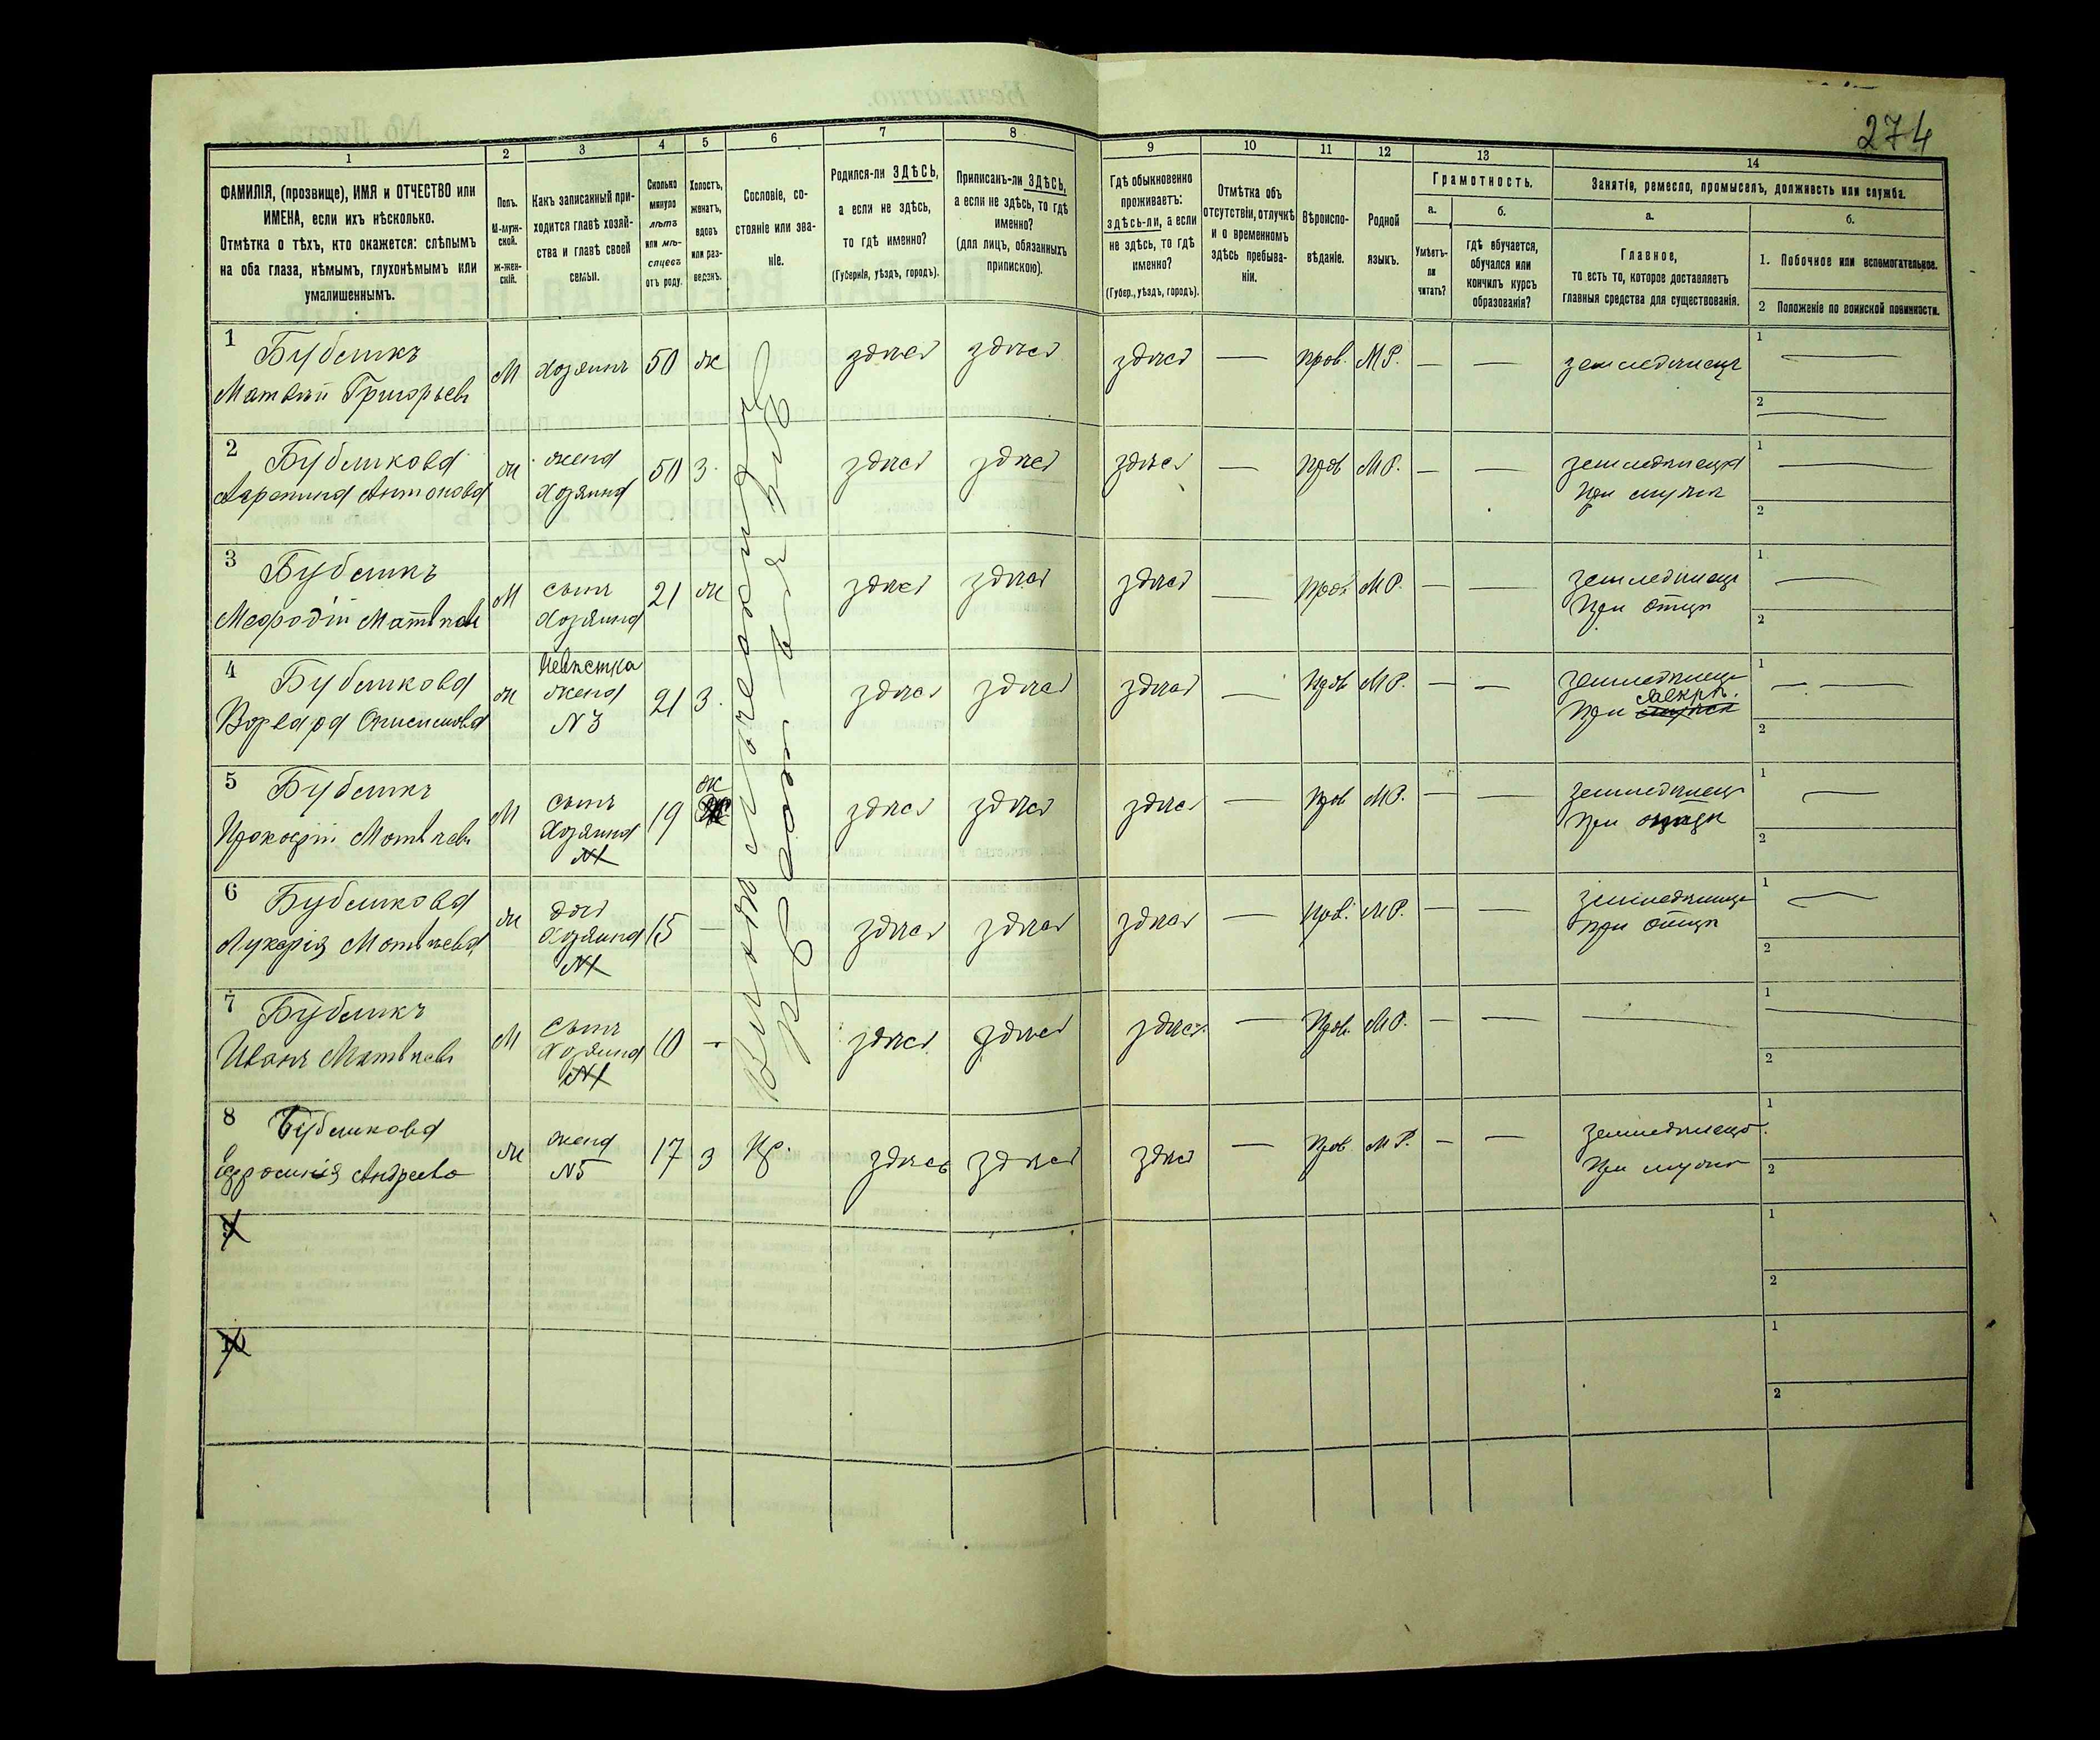 274
1 2 3 4 5 6 7 8 9 10 11 12 13 14
ФАМИЛІЯ, (прозвище), ИМЯ и ОТЧЕСТВО или
ИМЕНА, если ихъ нѣсколько.
Отмѣтка о тѣхъ, кто окажется: слѣпымъ
на оба глаза, нѣмымъ, глухонѣмымъ или
умалишеннымъ.
Полъ.
М-муж-
ской.
ж-жен-
скій.
Какъ записанный при-
ходится главѣ хозяй-
ства и главѣ своей
семьи.
Сколько
минуло
лѣтъ
или мѣ-
сяцевъ
отъ роду.
Холостъ,
женатъ,
вдовъ
или раз-
веденъ.
Сословіе, со-
стояніе или зва-
ніе.
Родился-ли ЗДѢСЬ,
а если не здѣсь,
то гдѣ именно?
(Губернія, уѣздъ, городъ).
Приписанъ-ли ЗДѢСЬ,
а если не здѣсь, то гдѣ
именно?
(для лицъ, обязанныхъ
припискою).
Гдѣ обыкновенно
проживаетъ:
здѣсь-ли, а если
не здѣсь, то гдѣ
именно?
(Губер., уѣздъ, городъ).
Отмѣтка объ
отсутствіи, отлучкѣ
и о временномъ
здѣсь пребыва-
ніи.
Вѣроиспо-
вѣданіе.
Родной
языкъ.
Грамотность.
а.
Умѣетъ-
ли
читать?
б.
гдѣ обучается,
обучался или
кончилъ курсъ
образованія?
Занятіе, ремесло, промыселъ, должность или служба.
а.
Главное,
то есть то, которое доставляетъ
главныя средства для существованія.
б.
1. Побочное или вспомогательное.
2 Положеніе по воинской повинности.
1 Бубликъ
Матвѣй Григорьевъ
М хозяинъ 50 ж здѣсь здѣсь здѣсь — прав. М.Р. — — земледѣлецъ
1 —
2 —
2 Бубликова
Агрипина Антонова
ж жена
хозяина
50 з. здѣсь здѣсь здѣсь — прав М.Р. — — земледѣлецъ
при мужѣ
1 —
2
3 Бубликъ
Мефодій Матвѣевъ
М сынъ
хозяина
21 ж здѣсь здѣсь здѣсь — прав М.Р. — — земледѣлецъ
при отцѣ
1 —
2
4 Бубликова
Невѣстка
жена
N 3
ж 21 з. здѣсь здѣсь здѣсь — прав М.Р. — — земледѣлецъ
свекрѣ.
при мужѣ
1 — —
2
5 Бубликъ
Прокофій Матвѣевъ
М сынъ
хозяина
N1
19 ж здѣсь здѣсь здѣсь — прав М.Р. — — земледѣлецъ
при отцѣ
1 —
2
6 Бубликова
Лукерія Матвѣева
ж дочь
хозяина
N1
15 — здѣсь здѣсь здѣсь — прав. М.Р. — — земледѣлецъ
при отцѣ
1 —
2
7 Бубликъ
Иванъ Матвѣевъ
М сынъ
хозяина
N1
10 — здѣсь здѣсь здѣсь — прав. М.Р. — — —
1
2
8 Бубликова
Ефросинія Андреева
ж жена
N5
17 з Кр. здѣсь здѣсь здѣсь — прав М.Р. — — земледѣлецъ
при мужѣ
1
2
9
1
2
10
1
2